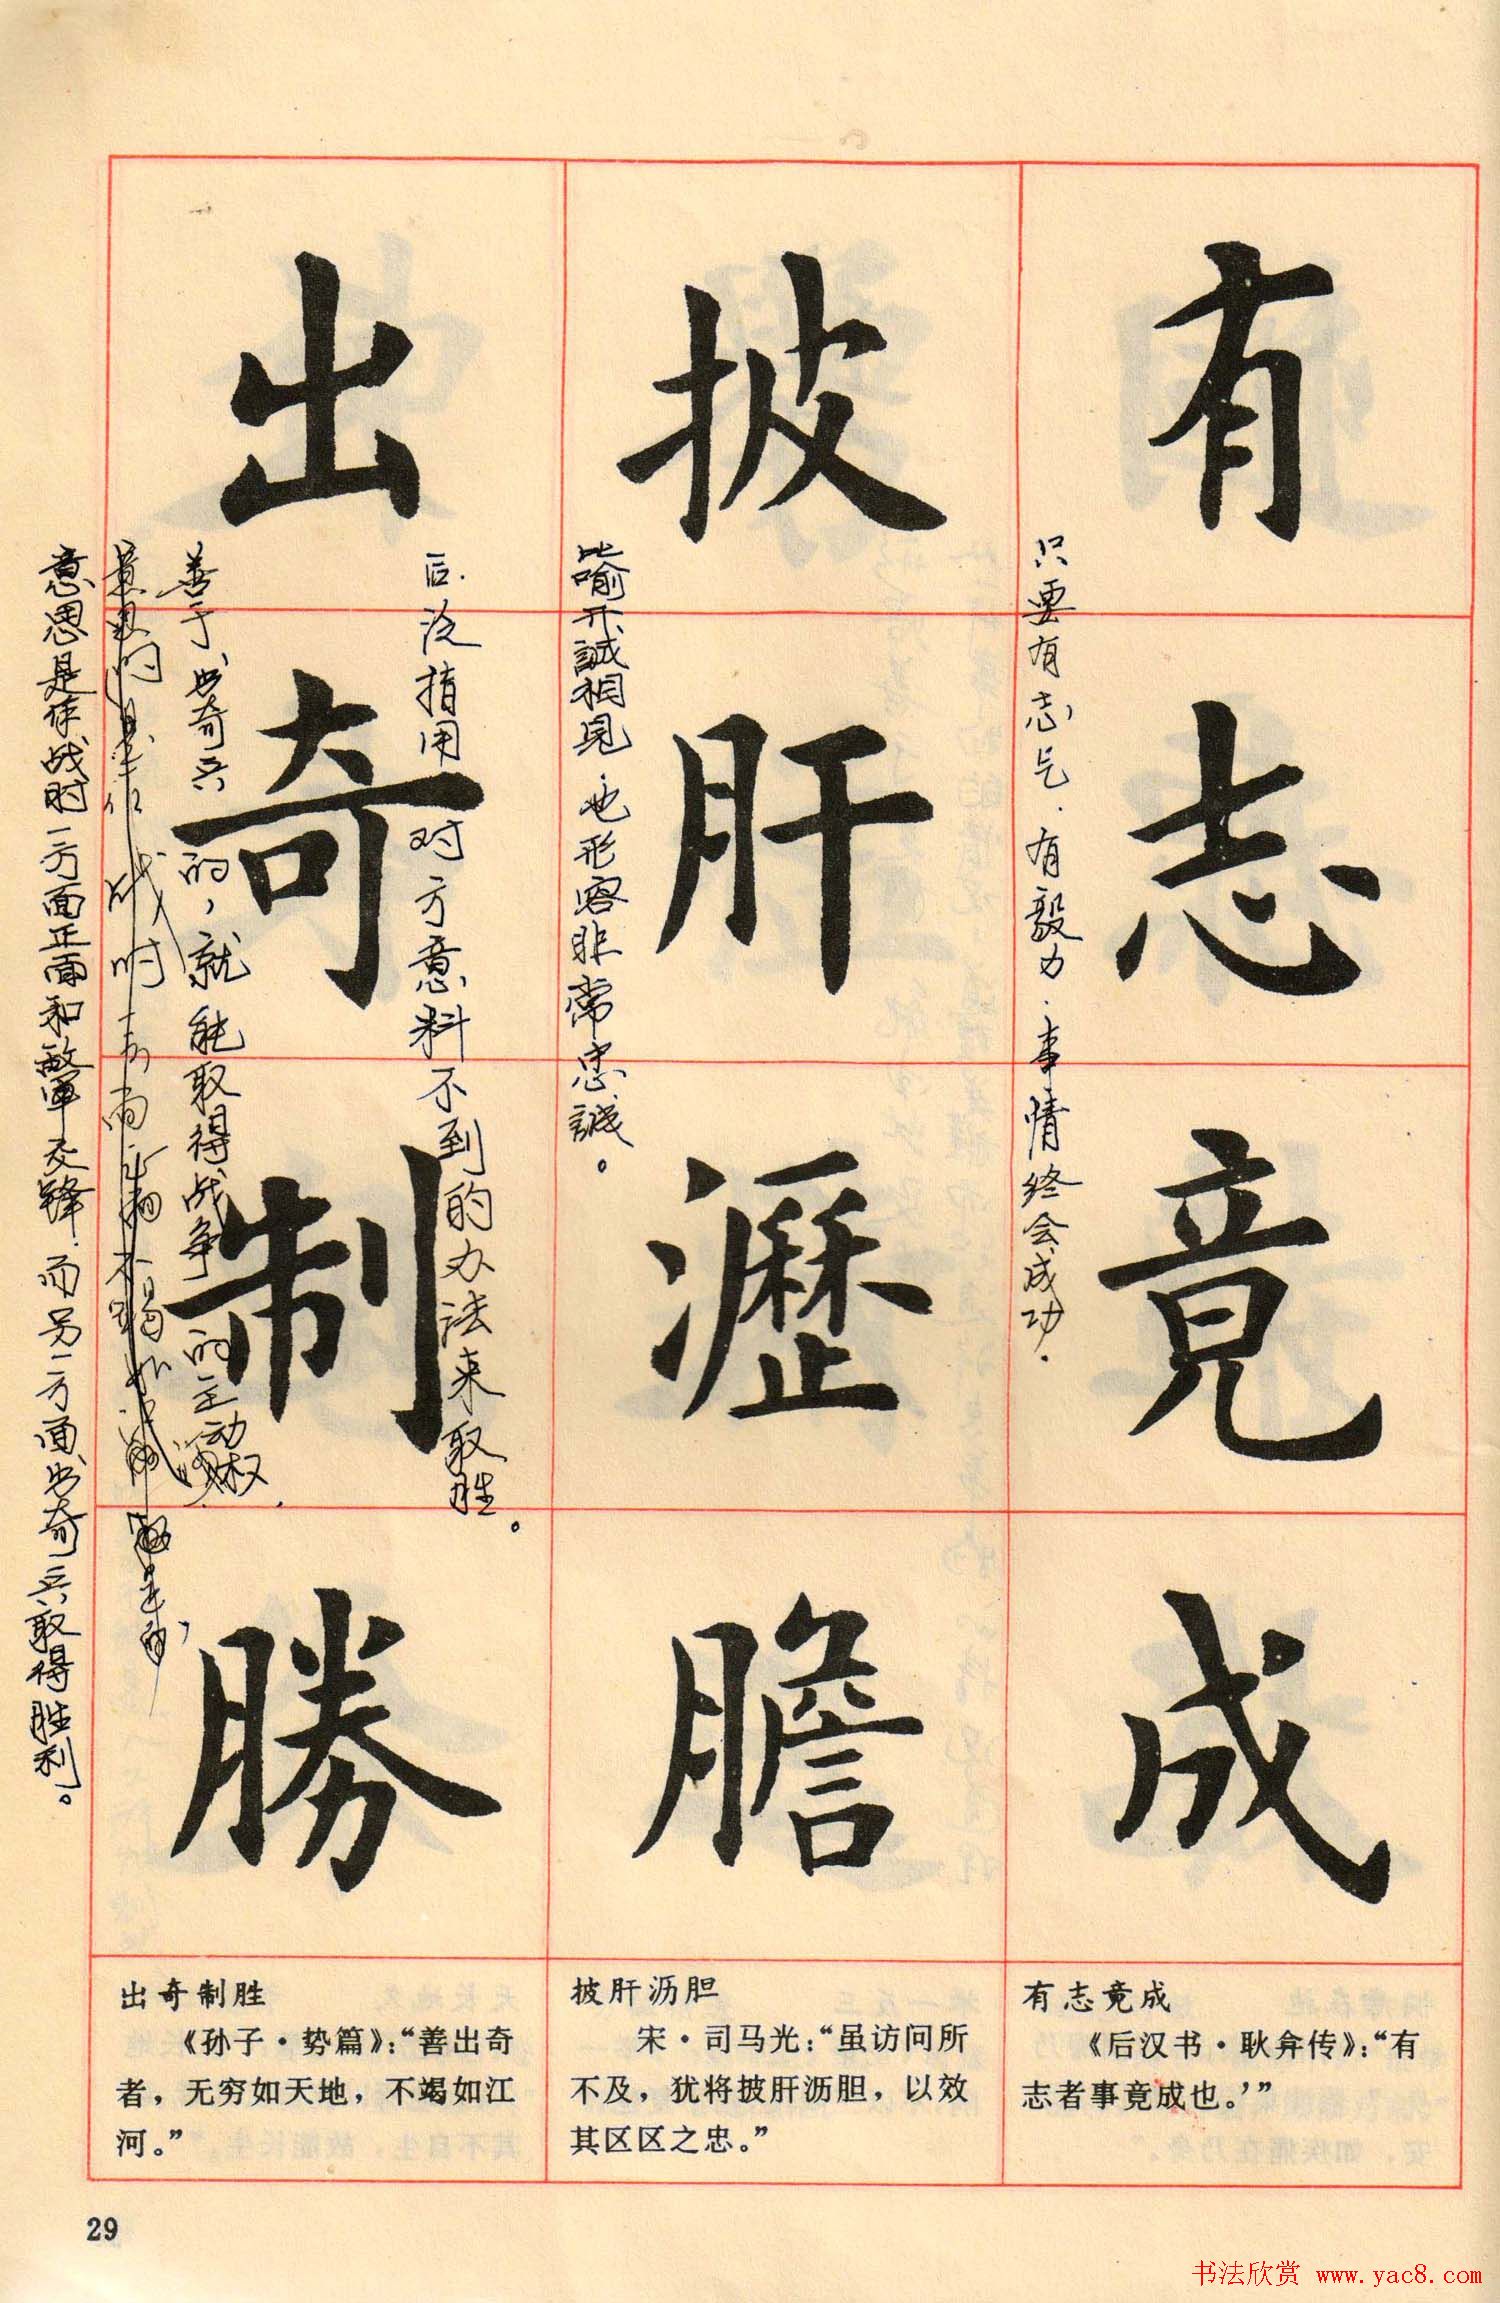 有志竟成
只要有志气.有毅力.事情终会成功.
披肝瀝膽
比喻开誠相見.也形容非常忠誠。
出奇制勝
后.泛指用对方意料不到的办法来取胜。
善于出奇兵的,就能取得战争的主动权.
意思是作战时一方面正面和敌军交锋.而另一方面出奇兵取得胜利。
有志竟成
《后汉书·耿弇传》:“有
志者事竟成也。’”
披肝沥胆
宋·司马光:“虽访问所
不及，犹将披肝沥胆，以效
其区区之忠。”
出奇制胜
《孙子·势篇》:“善出奇
者，无穷如天地，不竭如江
河。”
29
书法欣赏 www.yac8.com